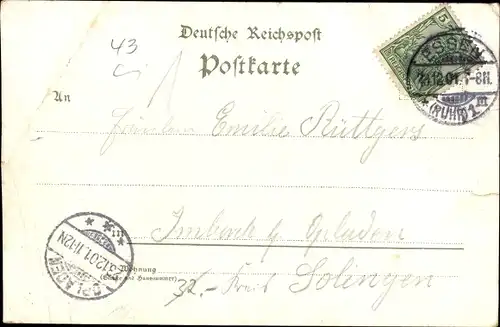 43
Deutsche Reichspost
Postkarte
5
ESSEN
12.01. 7-8N.
(RUHR) 1 m
An
Fräulein Emilie Rüttgers
Imbach b/ Opladen
Wohnung
(Straße und Hausnummer)
Kreis Solingen
OPLADEN
12.01. 11-12N